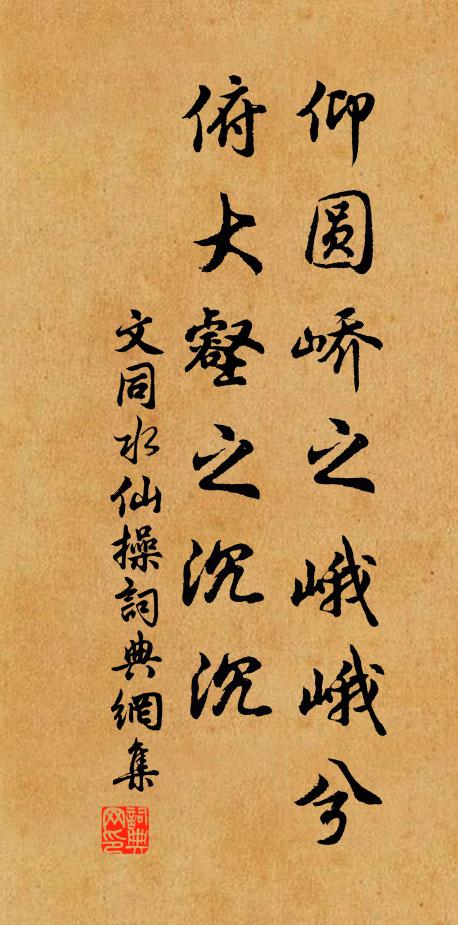 仰圆峤之峨峨兮
俯大壑之沉沉
文同水仙操詞典網集
詞典网印